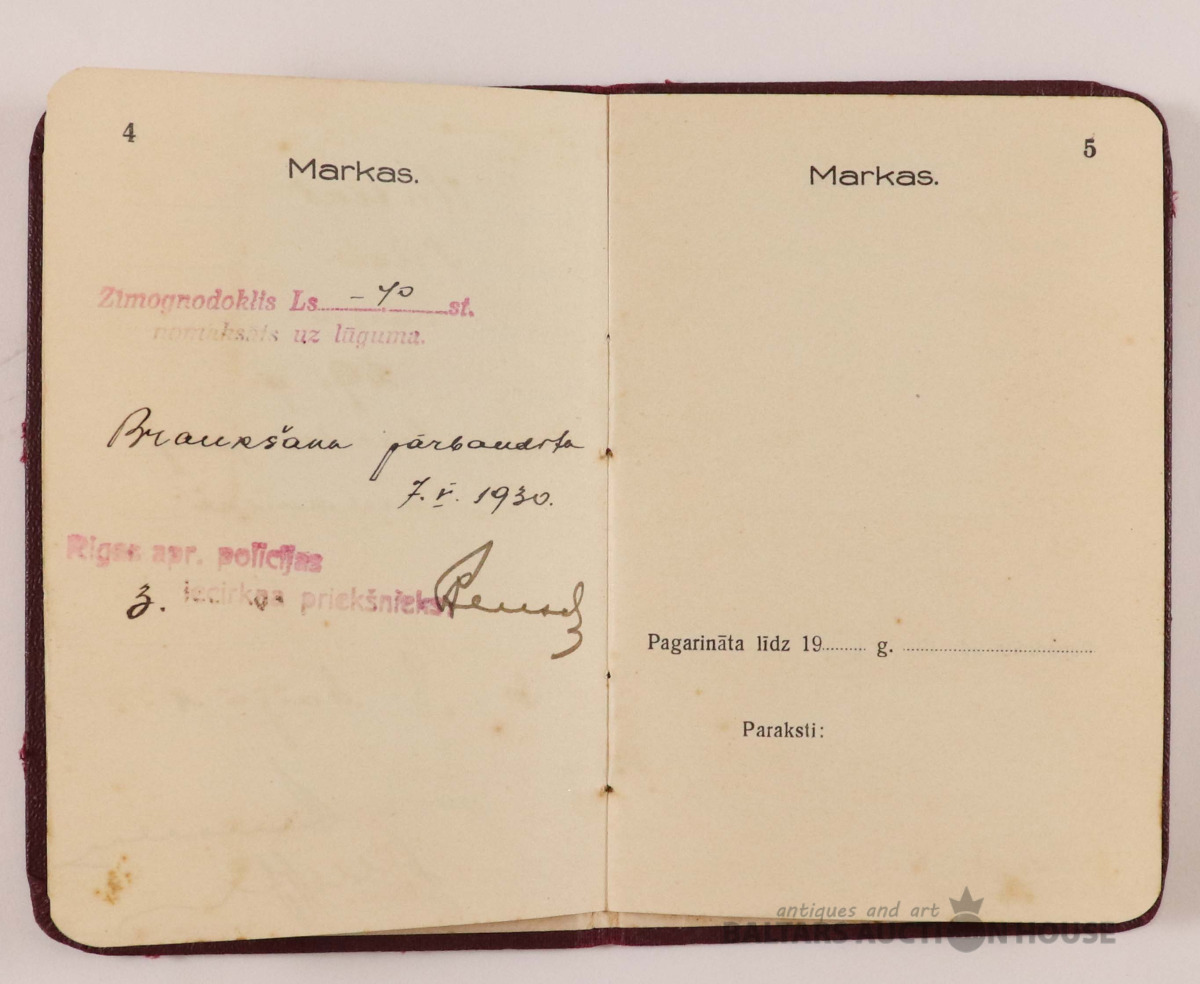 4
Markas.
Zīmognodoklis Ls. -40 st.
nomaksāts uz lūguma.
Braukšana pārbaudīta
7. V. 1930.
Rīgas apr. policijas
3. iecirkņa priekšnieks
5
Markas.
Pagarināta līdz 19......... g. ........................................
Paraksti:
antiques and art
BALTARS AUCTION HOUSE